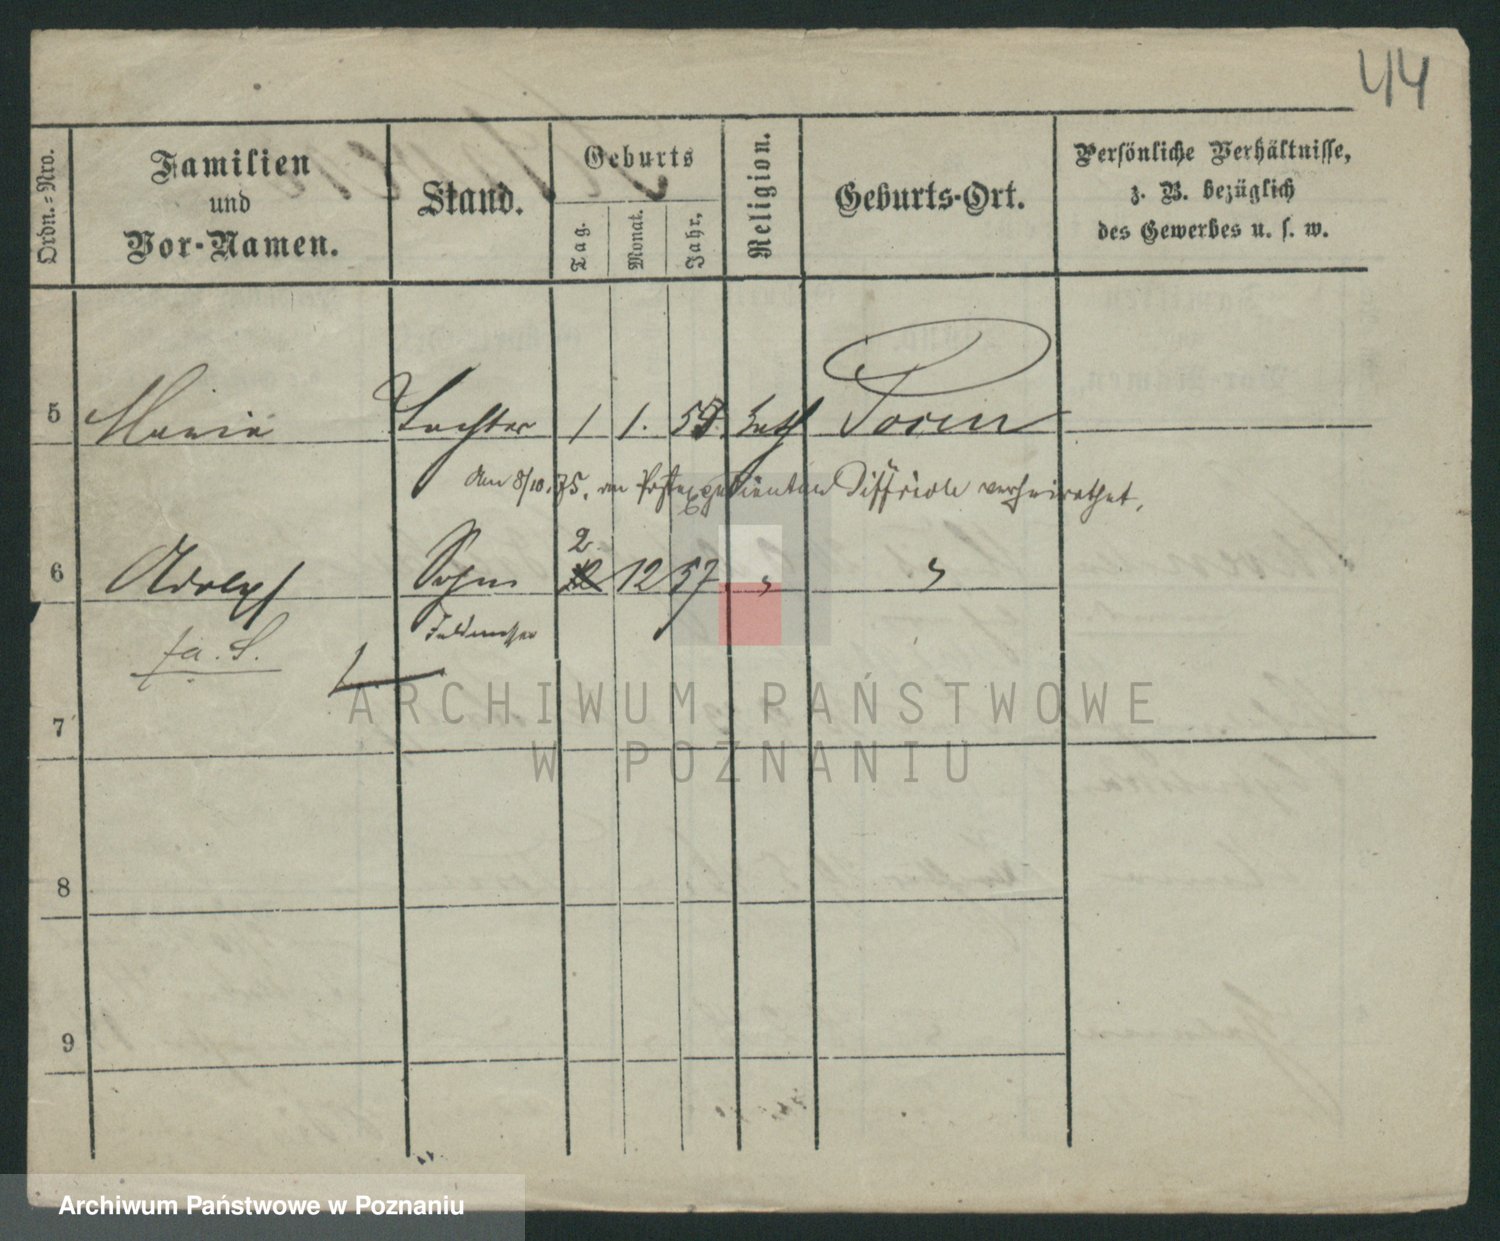 44
Ordn.-Nro.
Familien
und
Vor-Namen.
Stand.
Geburts
Tag.
Monat.
Jahr,
Religion.
Geburts-Ort.
Persönliche Verhältnisse,
z. B. bezüglich
des Gewerbes u. s. w.
5 Marie Tochter 1 1. 55. kath Posen
Am 8/10. 75. an Postexpedienten verheirathet.
6 Adolph Sohn 2 12 57 " "
Feldmesser
fa. S.
7
ARCHIWUM PAŃSTWOWE
W POZNANIU
8
9
Archiwum Państwowe w Poznaniu